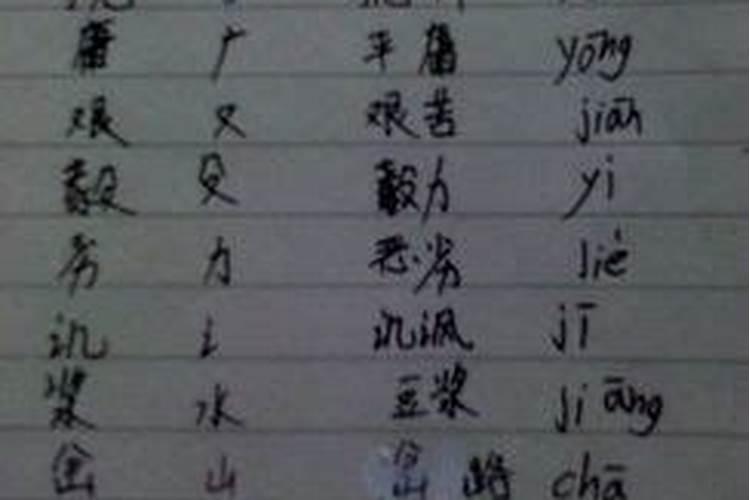 庸 广 平庸 yōng
艰 又 艰苦 jiān
毅 殳 毅力 yì
劣 力 恶劣 liè
讥 讠 讥讽 jī
浆 水 豆浆 jiāng
岔 山 岔路 chā